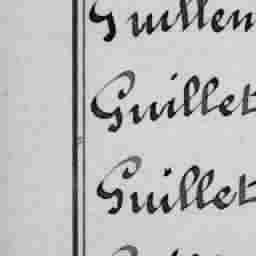 Guillen
Guillet
Guillet